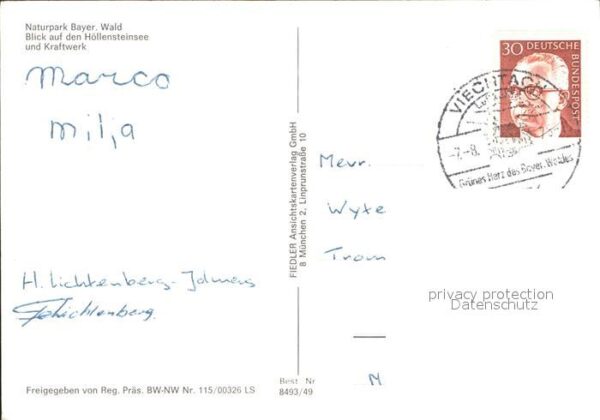 Naturpark Bayer. Wald
Blick auf den Höllensteinsee
und Kraftwerk
Marco
milja
H. Lichtenberg-Idmers
Lichtenberg.
Freigegeben von Reg. Präs. BW-NW Nr. 115/00326 LS
FIEDLER Ansichtskartenverlag GmbH
8 München 2, Linprunstraße 10
Best Nr
8493/49
30 DEUTSCHE
BUNDESPOST
VIECHTACH
-7.-8.
Grünes Herz des Bayer. Waldes
Mevr.
Wyte
Trom
M
privacy protection
Datenschutz